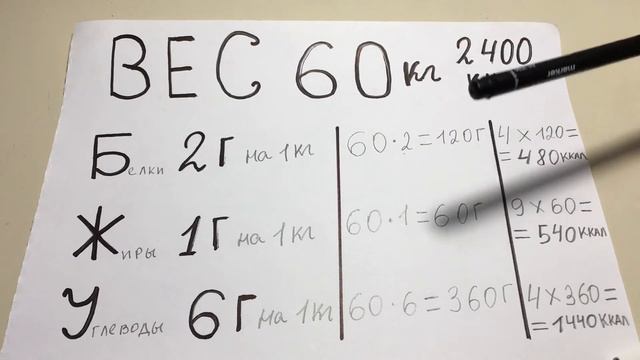 ВЕС 60 кг 2400
Белки 2г на 1кг 60·2=120г 4×120=
=480ккал
Жиры 1г на 1кг 60·1=60г 9×60=
=540ККАЛ
Углеводы 6г на 1кг 60·6=360г 4×360=
=1440ККАЛ